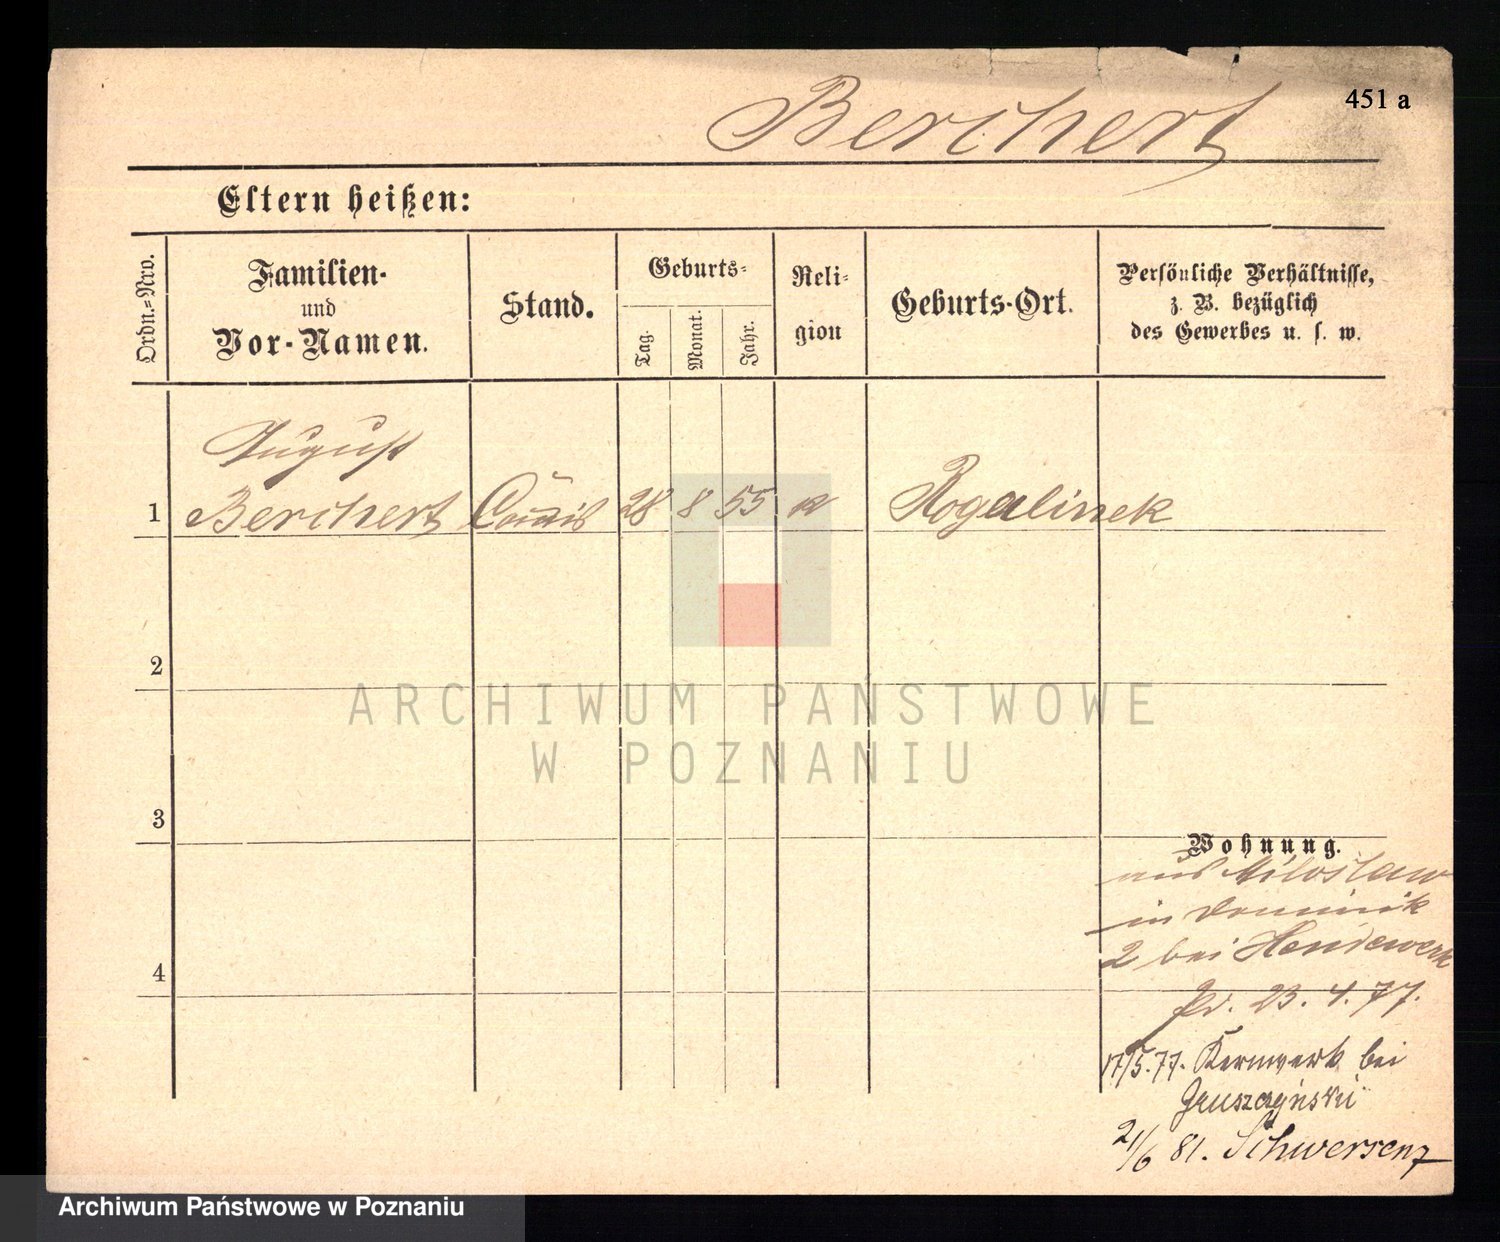 451 a
Berchert
Eltern heißen:
Ordn.-Nro.
Familien-
und
Vor-Namen.
Stand.
Geburts-
Tag.
Monat.
Jahr.
Reli-
gion
Geburts-Ort.
Persönliche Verhältnisse,
z. B. bezüglich
des Gewerbes u. s. w.
August
1 Berchert Comis 28 8 55 k Rogalinek
2
ARCHIWUM PAŃSTWOWE
W POZNANIU
3
Wohnung.
aus Miloslaw
in Dominik
2 bei
4
Pr. 23. 4. 77.
17/5. 77. Kernwerk bei
Gruszczyński
2/6 81. Schwersenz
Archiwum Państwowe w Poznaniu